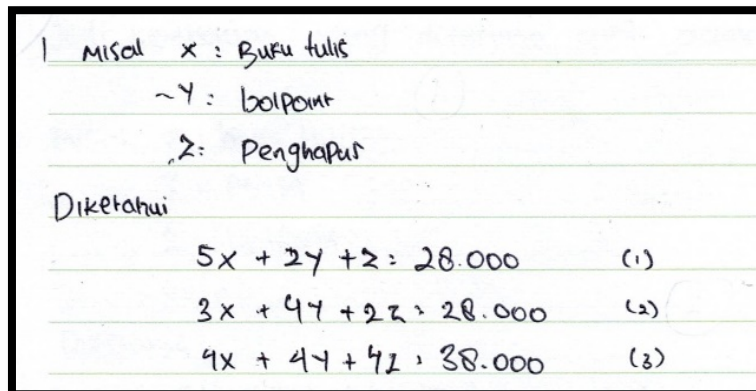 1 Misal x : Buku tulis
~ Y : bolpoint
Z : Penghapus
Diketahui
5x + 2y + z : 28.000 (1)
3x + 4y + 2z : 28.000 (2)
4x + 4y + 4z : 38.000 (3)